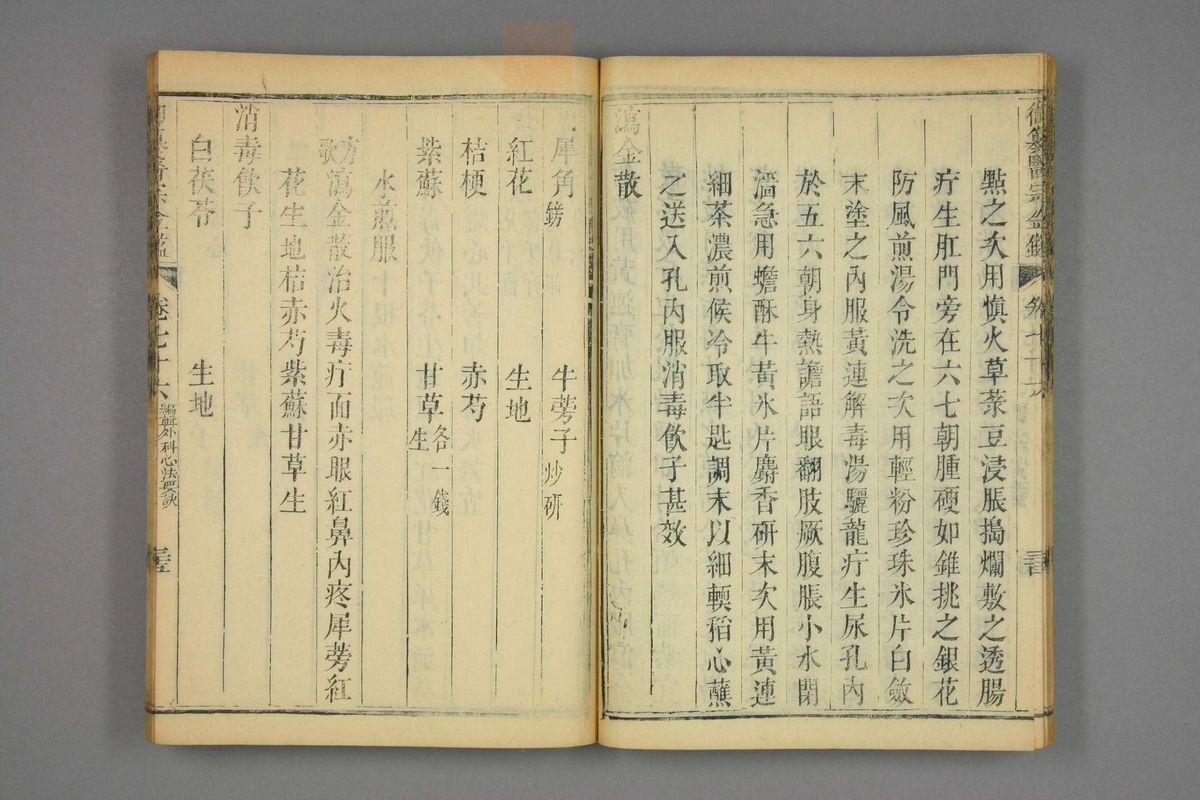 御纂醫宗金鑑 卷七十六
點之次用愼火草菉豆浸脹搗爛敷之透腸
疔生肛門旁在六七朝腫硬如錐挑之銀花
防風煎湯令洗之次用輕粉珍珠氷片白斂
末塗之內服黃連解毒湯驪龍疔生尿孔內
於五六朝身熱譫語眼翻肢厥腹脹小水閉
濇急用蟾酥牛黃氷片麝香研末次用黃連
細茶濃煎候冷取半匙調末以細輭稻心蘸
之送入孔內服消毒飲子甚效
瀉金散
犀角鎊 牛蒡子炒研
紅花 生地
桔梗 赤芍
紫蘇 甘草生各一錢
水煎服
方歌 瀉金散治火毒疔面赤眼紅鼻內疼犀蒡紅
花生地桔赤芍紫蘇甘草生
消毒飲子
白茯苓 生地
卷七十六 編輯外科心法要訣